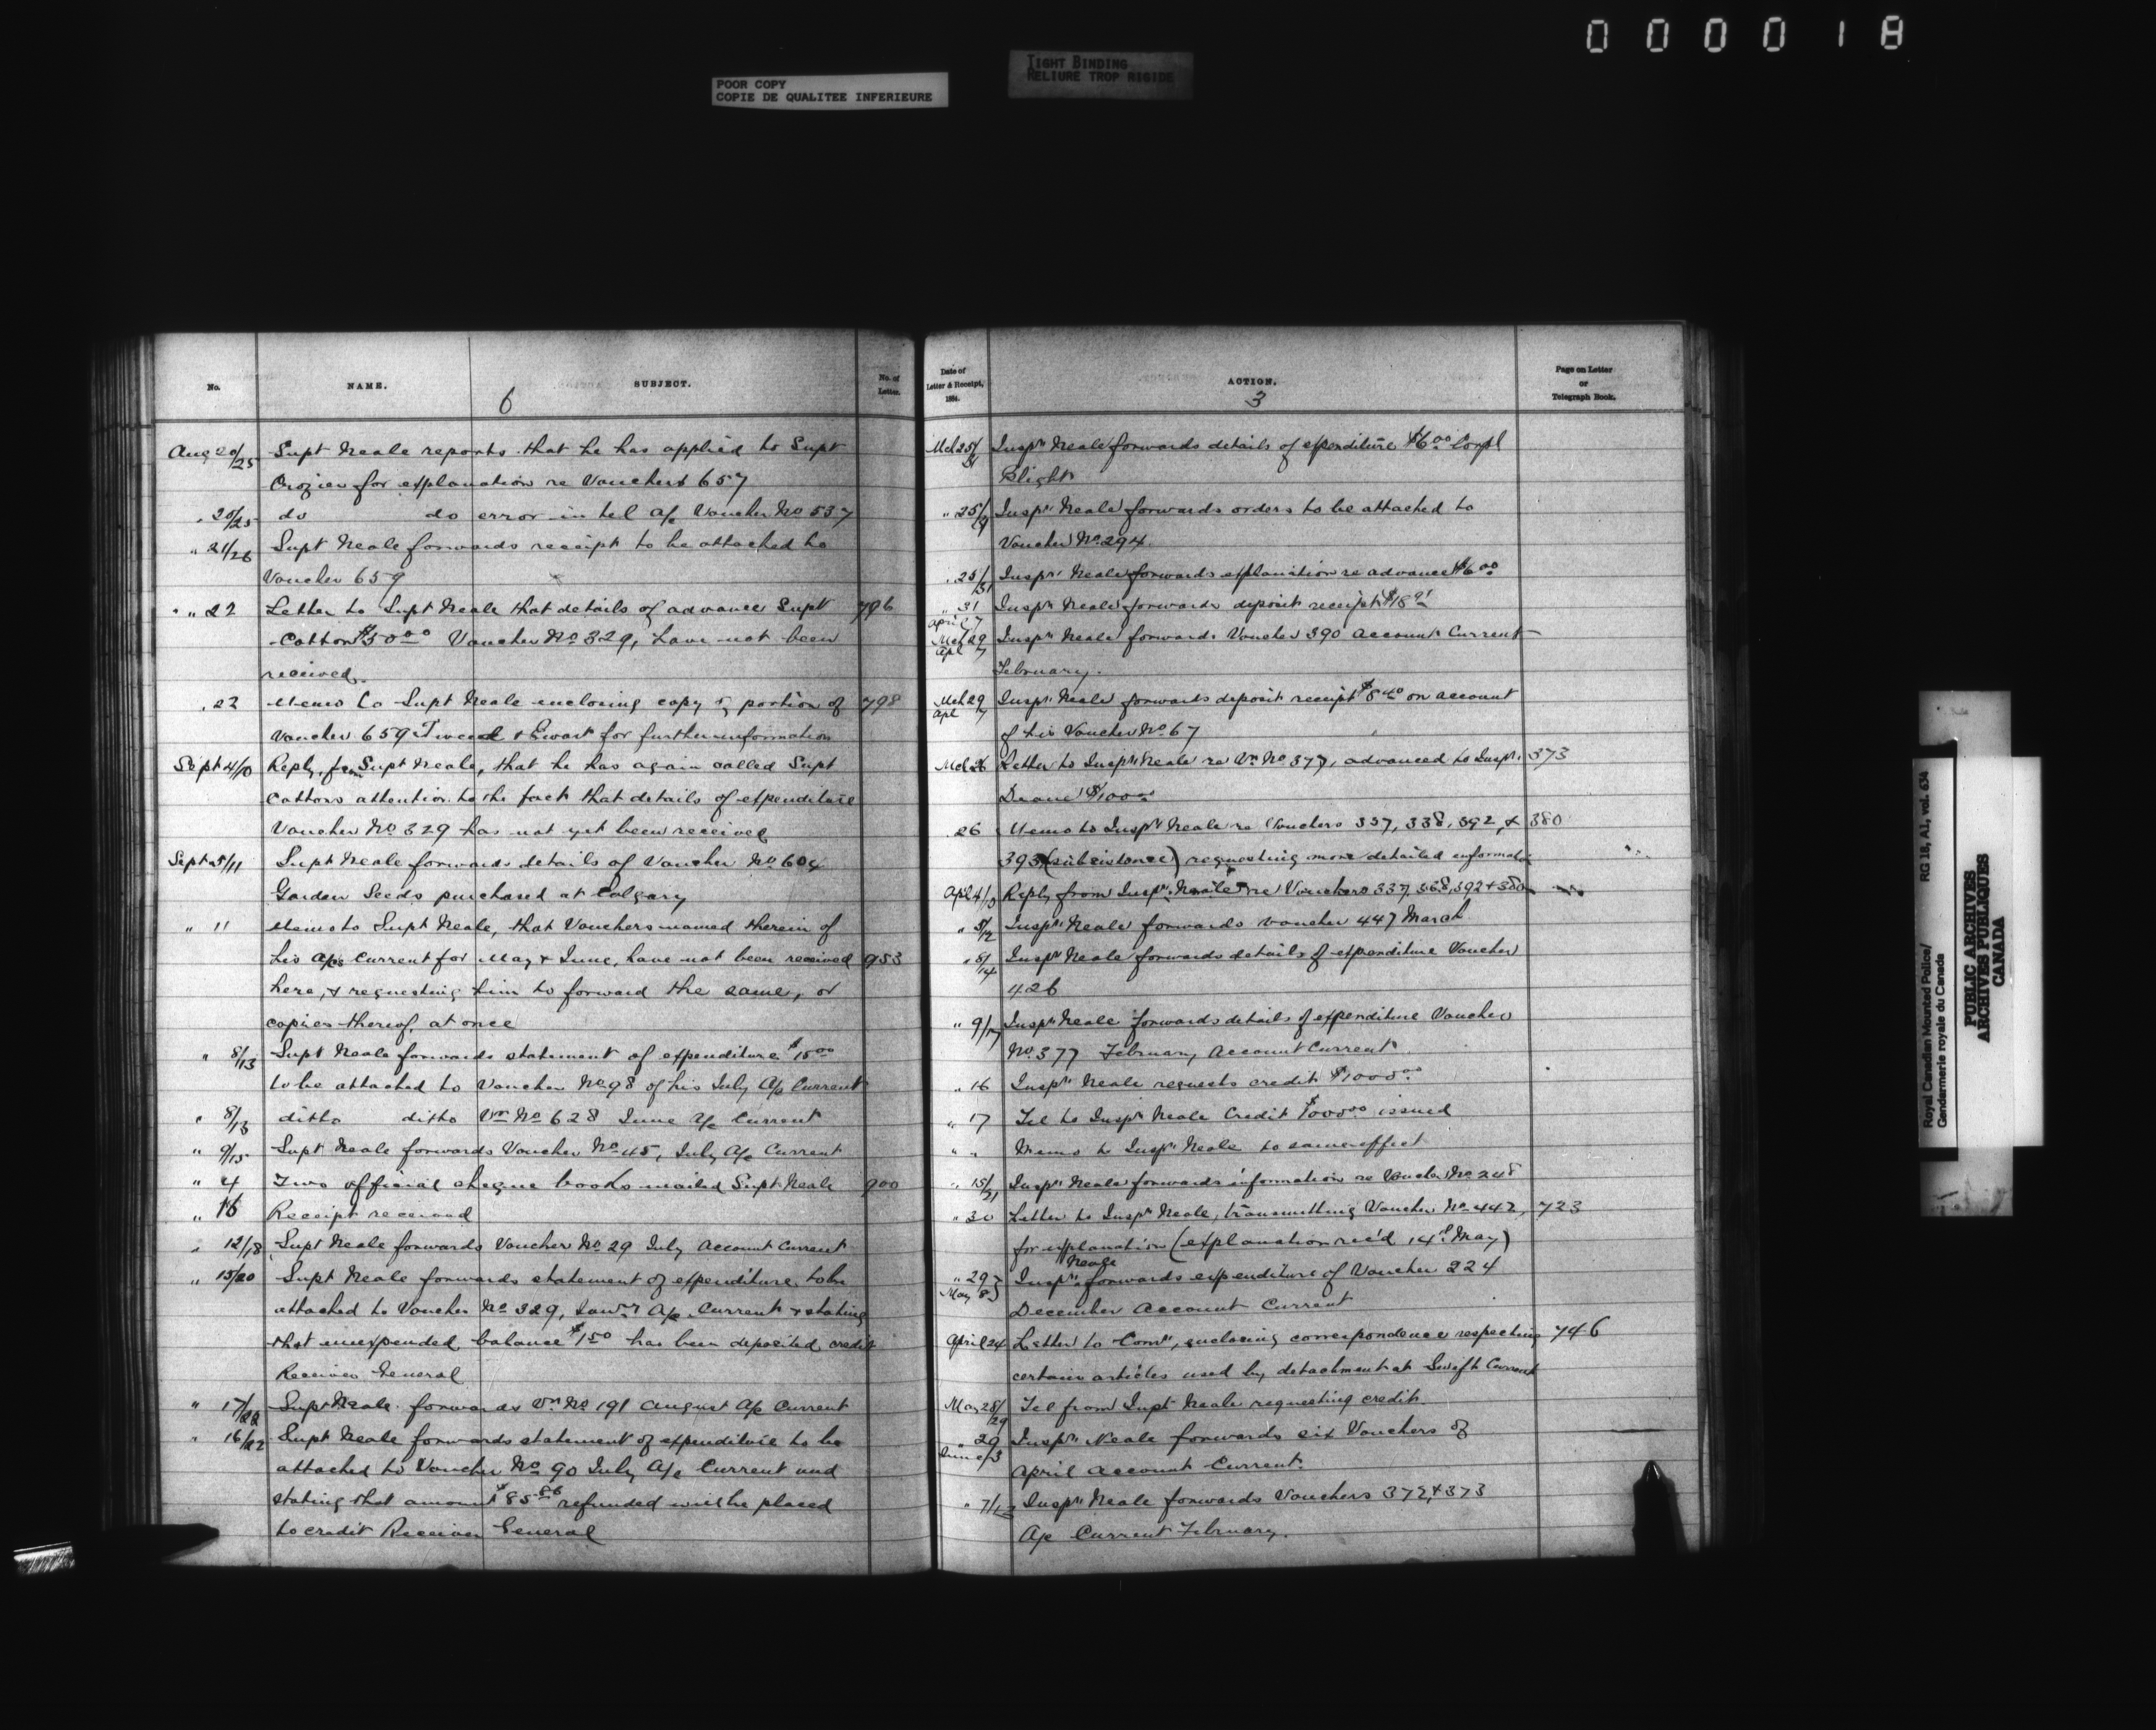 000018
POOR COPY
COPIE DE QUALITEE INFERIEURE
TIGHT BINDING
RELIURE TROP RIGIDE
No.
NAME.
SUBJECT.
No. of
Letter.
6
Aug 20/25 Supt Neale reports that he has applied to Supt
Crozier for explanation re Vouchers 657
" 20/25 do do error in tel a/c Voucher No 537
" 21/26 Supt Neale forwards receipt to be attached to
Voucher 659
" " 22 Letter to Supt Neale that details of advance Supt 796
Cotton $50.00 Voucher No 329, have not been
received.
" 22 Memo to Supt Neale enclosing copy of portion of 798
Voucher 659 Tweed & Ewart for further information
Sept 4/10 Reply from Supt Neale, that he has again called Supt
Cottons attention to the fact that details of expenditure
Voucher No 329 has not yet been received
Sept 5/11 Supt Neale forwards details of Voucher No 604
Garden Seeds purchased at Calgary
" 11 Memo to Supt Neale, that Vouchers named therein of
his a/cs Current for May & June, have not been received 953
here, & requesting him to forward the same, or
copies thereof, at once
" 8/13 Supt Neale forwards statement of expenditure $15.00
to be attached to Voucher No 98 of his July A/c Current
" 8/13 ditto ditto Vr No 628 June A/c Current
" 9/15 Supt Neale forwards Voucher No 45, July A/c Current
" 4 Two official cheque books mailed Supt Neale 900
" 16 Receipt received
" 12/18 Supt Neale forwards Voucher No 29 July Account Current
" 15/20 Supt Neale forwards statement of expenditure to be
attached to Voucher No 329, Janry A/c Current & stating
that unexpended balance $1.50 has been deposited credit
Receiver General
" 17/22 Supt Neale forwards Vr No 191 August A/c Current
" 16/22 Supt Neale forwards statement of expenditure to be
attached to Voucher No 90 July A/c Current and
stating that amount $85.86 refunded will be placed
to credit Receiver General
Date of
Letter & Receipt,
1884.
ACTION.
Page on Letter
or
Telegraph Book.
3
Mch 25/31 Inspr Neale forwards details of expenditure $6.00 Corpl
Blight
" 25/ Inspr Neale forwards orders to be attached to
Voucher No 294
" 25/31 Inspr Neale forwards explanation re advance $6.00
" 31 April 7 Inspr Neale forwards deposit receipt $18.91
Mch 29 Apl 7 Inspr Neale forwards Voucher 390 Account Current
February.
Mch 29 Apl 7 Inspr Neale forwards deposit receipt $8.40 on account
of his Voucher No 67
Mch 26 Letter to Inspr Neale re Vr No 377, advanced to Inspr 373
Deane $100.00
26 Memo to Inspr Neale re Vouchers 337, 338, 392, & 380
393 (subsistence) requesting more detailed information
Apl 4/ Reply from Inspr Neale re Vouchers 337, 368, 392 & 380
" 5/12 Inspr Neale forwards voucher 447 March
" 5/14 Inspr Neale forwards details of expenditure Voucher
426
" 9/17 Inspr Neale forwards details of expenditure Voucher
No 377 February Account Current
" 16 Inspr Neale requests credit $1000.00
" 17 Tel to Inspr Neale Credit $1000.00 issued
" " Memo to Inspr Neale to same effect
" 15/21 Inspr Neale forwards information re Voucher No 248
" 30 Letter to Inspr Neale, transmitting Voucher No 442, 723
for explanation (explanation rec'd 14th May)
" 29 May 8 Inspr Neale forwards expenditure of Voucher 224
December Account Current
April 24 Letter to Comr, enclosing correspondence respecting 746
certain articles used by detachment at Swift Current
May 28/29 Tel from Supt Neale requesting credit
" 29 June 3 Inspr Neale forwards six Vouchers of
April Account Current.
" 7/12 Inspr Neale forwards Vouchers 372 & 373
A/c Current February.
Royal Canadian Mounted Police/
Gendarmerie royale du Canada
RG 18, A1, vol. 634
PUBLIC ARCHIVES
ARCHIVES PUBLIQUES
CANADA